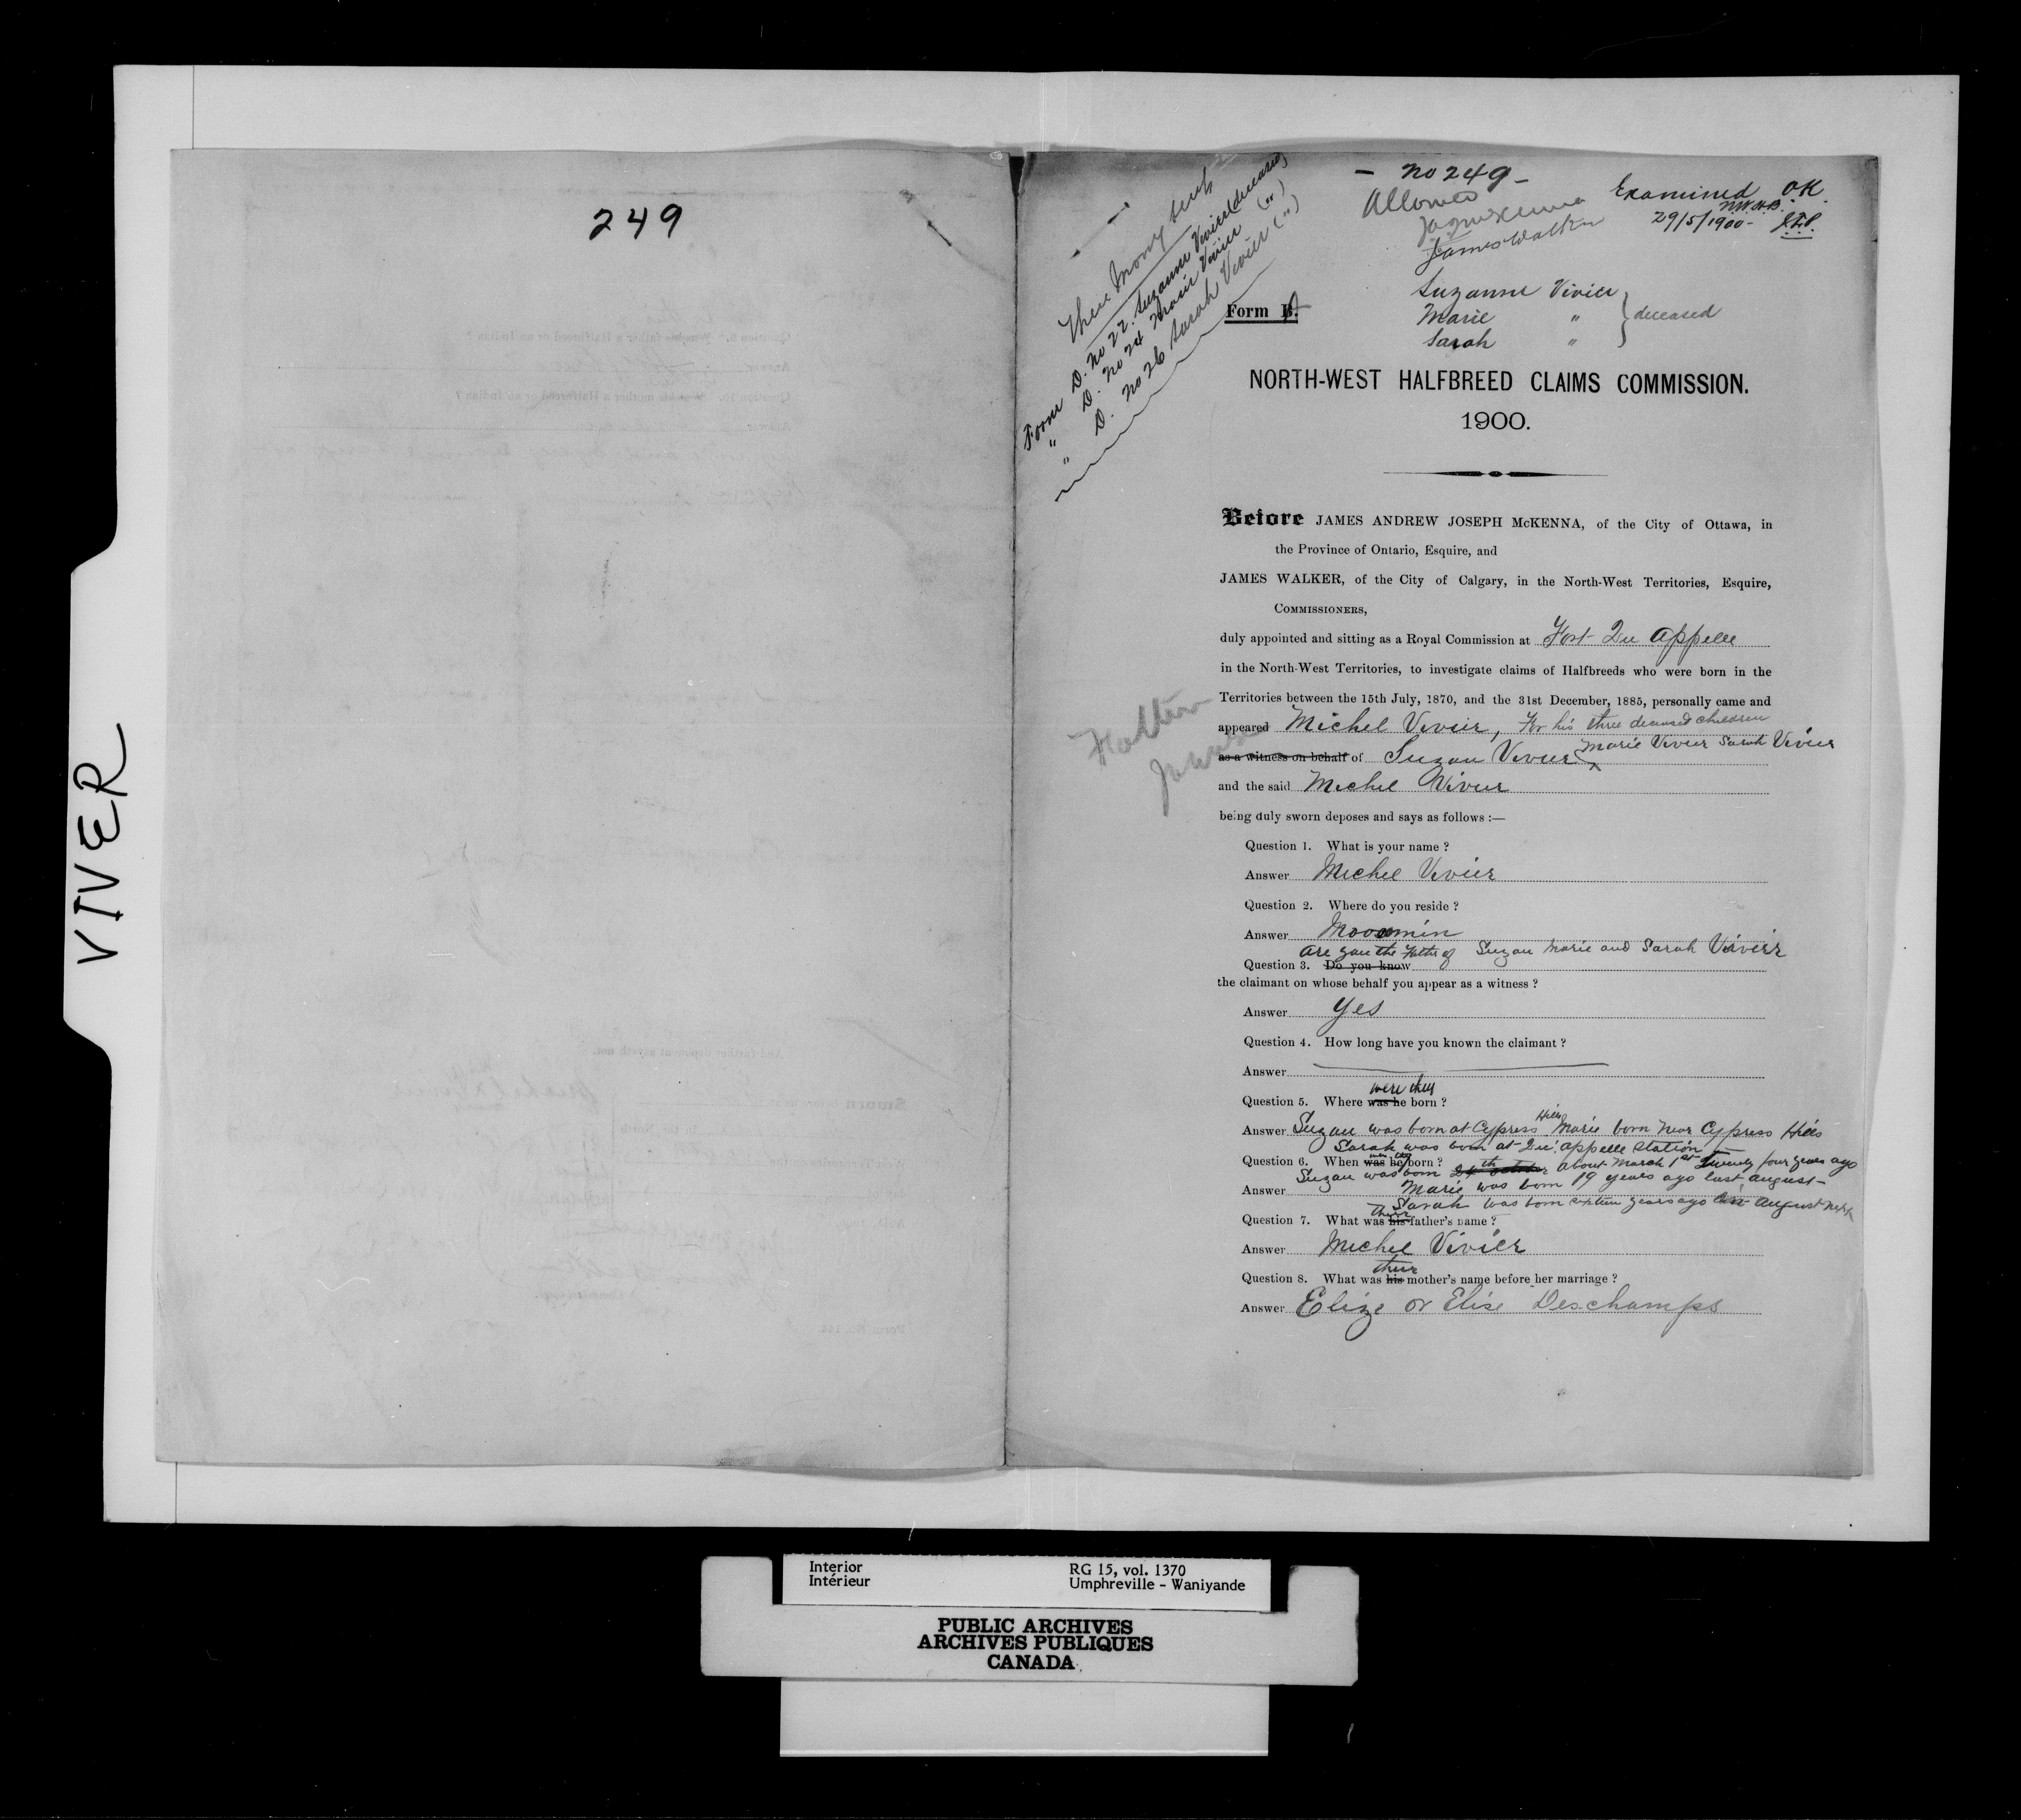 VIVER
249
- No 249 -
Allowed
JAJ McKenna
James Walker
Examined OK.
N.W.H.B.
29/5/1900-
Three money scrip
Form D. No 22. Suzanne Vivier (deceased)
" D. No 24 Marie Vivier (")
" D. No 26 Sarah Vivier (")
Suzanne Vivier
Marie " } deceased
Sarah "
Form
NORTH-WEST HALFBREED CLAIMS COMMISSION.
1900.
Before JAMES ANDREW JOSEPH McKENNA, of the City of Ottawa, in
the Province of Ontario, Esquire, and
JAMES WALKER, of the City of Calgary, in the North-West Territories, Esquire,
COMMISSIONERS,
duly appointed and sitting as a Royal Commission at Fort Qu Appelle
in the North-West Territories, to investigate claims of Halfbreeds who were born in the
Territories between the 15th July, 1870, and the 31st December, 1885, personally came and
appeared Michel Vivier, For his three deceased children
as a witness on behalf of Suzan Vivier Marie Vivier Sarah Vivier
and the said Michel Vivier
being duly sworn deposes and says as follows :—
Question 1. What is your name ?
Answer Michel Vivier
Question 2. Where do you reside ?
Answer Moosomin
are you the Father of Suzan Marie and Sarah Vivier
Question 3. Do you know
the claimant on whose behalf you appear as a witness ?
Answer Yes
Question 4. How long have you known the claimant ?
Answer
were they
Question 5. Where was he born ?
Answer Suzan was born at Cypress Hills Marie born near Cypress Hills
Sarah was born at Qu'appelle Station
Question 6. When was he born ?
were they
Suzan was born 24th october about March 1st Twenty four years ago
Answer Marie was born 19 years ago last august-
Sarah was born sixteen years ago last August next
their
Question 7. What was his father's name ?
Answer Michel Vivier
their
Question 8. What was his mother's name before her marriage ?
Answer Elize or Elise Deschamps
Interior
Intérieur
RG 15, vol. 1370
Umphreville - Waniyande
PUBLIC ARCHIVES
ARCHIVES PUBLIQUES
CANADA